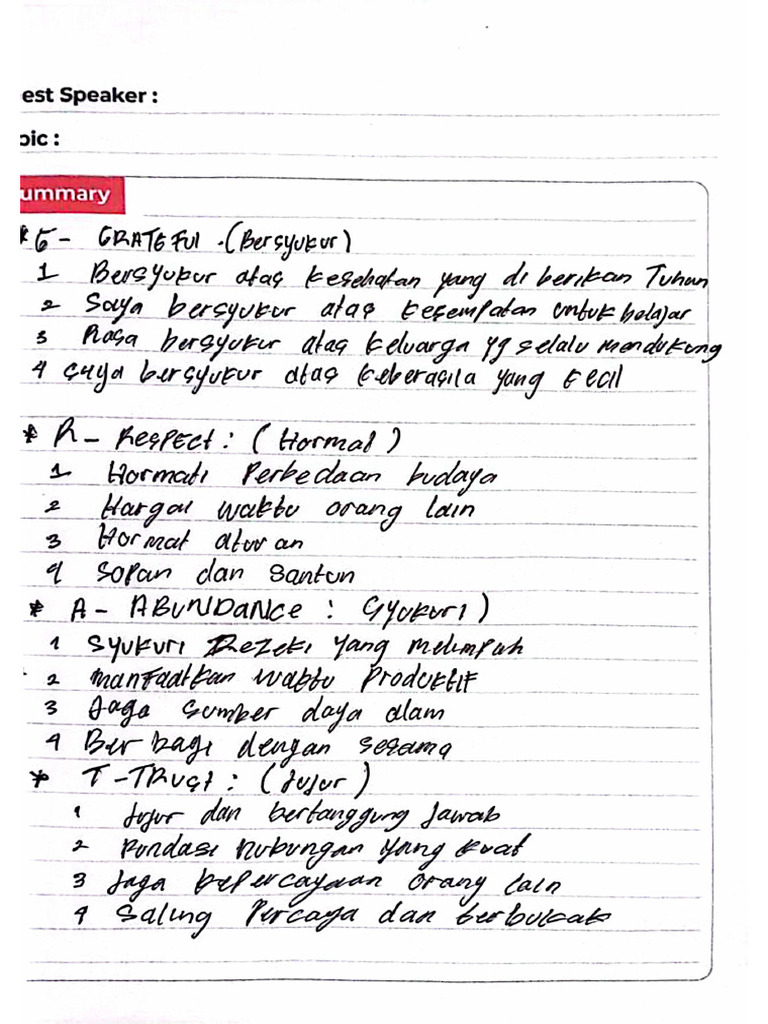 est Speaker :
pic :
ummary
* G - GRATEFUL . (Bersyukur)
1 Bersyukur atas kesehatan yang di berikan Tuhan
2 Saya bersyukur atas kesempatan untuk belajar
3 Rasa bersyukur atas keluarga yg selalu mendukung
4 saya bersyukur atas keberasila yang kecil
* R - RESPECT : (Hormat)
1 Hormati Perbedaan budaya
2 Hargai waktu orang lain
3 Hormat aturan
4 Sopan dan Santun
* A - ABUNDANCE : Syukuri)
1 Syukuri Rezeki yang melimpah
2 manfaatkan waktu Produktif
3 Jaga sumber daya alam
4 Berbagi dengan sesama
* T - TRUST : (Jujur)
1 Jujur dan bertanggung Jawab
2 Pondasi hubungan yang kuat
3 Jaga kepercayaan orang lain
4 Saling Percaya dan terbukak